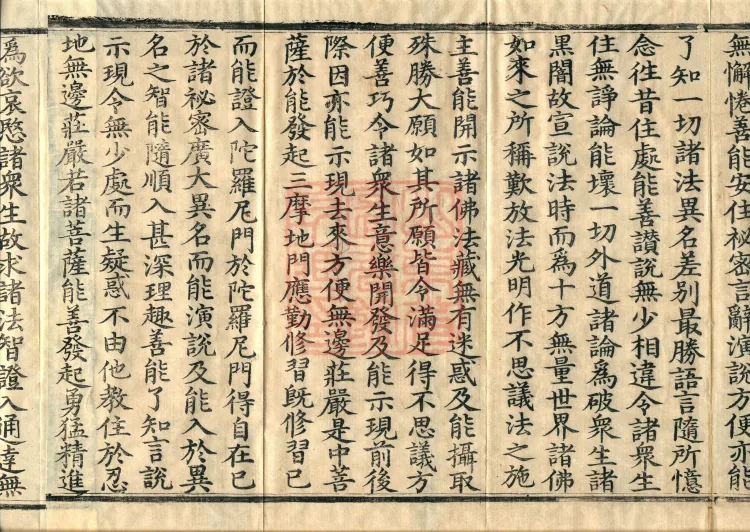 無懈惓善能安住祕密言辭演說方便亦能
了知一切諸法異名差別最勝語言隨所憶
念往昔住處能善讃說無少相違令諸衆生
住無諍論能壞一切外道諸論爲破衆生諸
黑闇故宣說法時而爲十方無量世界諸佛
如來之所稱歎放法光明作不思議法之施
主善能開示諸佛法藏無有迷惑及能攝取
殊勝大願如其所願皆令滿足得不思議方
便善巧令諸衆生意樂開發及能示現前後
際因亦能示現去來方便無邊莊嚴是中菩
薩於能發起三摩地門應勤修習旣修習已
而能證入陀羅尼門於陀羅尼門得自在已
於諸祕密廣大異名而能演說及能入於異
名之智能隨順入甚深理趣善能了知言說
示現令無少處而生疑惑不由他教住於忍
地無邊莊嚴若諸菩薩能善發起勇猛精進
爲欲哀愍諸衆生故求諸法智證入通達無